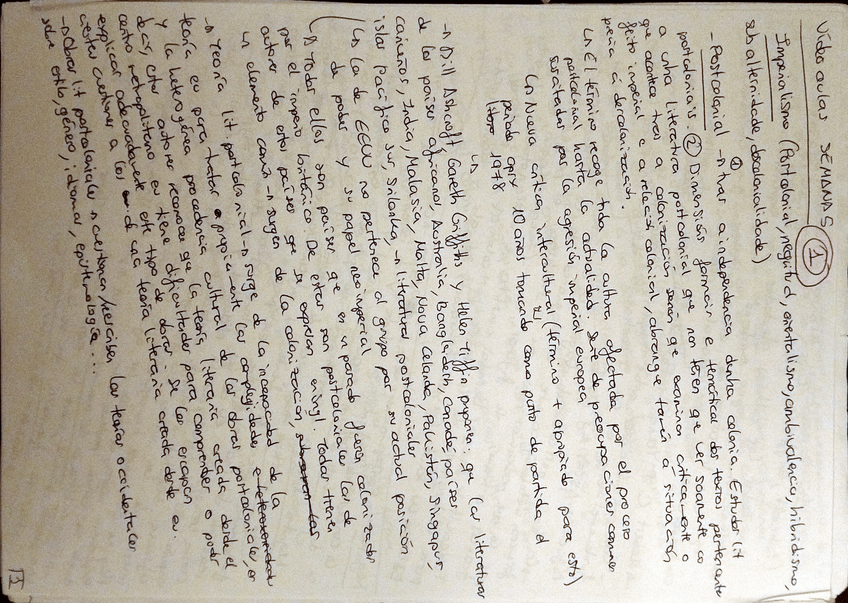 Vídeo aulas SEMANAS 1
Imperialismo (Postcolonial, negritud, orientalismo, ambivalencia, hibridismo,
subalternidade, decolonialidade)
- Postcolonial → ① tras a independencia dunha colonia. Estudos lit
postcoloniais. ② Dimensións formais e temáticas dos textos pertencente
a unha literatura postcolonial que non teñen que ver soamente co
que acontece tras a colonización senón que examinan criticamente o
feito imperial e a relación colonial, abrangue tamén a situación
previa á descolonización.
↳ El término recoge toda la cultura afectada por el proceso
postcolonial hasta la actualidad. Serie de preocupaciones comunes
suscitadas por la agresión imperial europea
↳ Nueva crítica intercultural (término + apropiado para esto)
periodo aprx 10 anos tomando como punto de partida el
libro 1978
→ Bill Ashcroft Gareth Griffiths y Helen Tiffin proponen: que las literaturas
de los países africanos, Australia Bangladesh, Canadá, países
caribeños, India, Malasia, Malta, Nova Celanda, Pakistán, Singapur,
islas Pacífico Sur, Srilanka, → literaturas postcoloniales
↳ La de EEUU no pertenece al grupo por su actual posición
de poder y su papel neoimperial
↳ Todas ellas son países que en pasado fueron colonizados
por el imperio británico. De estas son postcoloniales las de
autores de estos países que se expresan en ingl. Todas tienen
un elemento común → surgen de la colonización,
→ Teoría lit postcolonial → surge de la incapacidad de la
teoría eu para tratar apropiadamente las complejidades
y la heterogénea procedencia cultural de las obras postcoloniales, es
decir, estos autores reconocen que la teoría literaria creada desde el
centro metropolitano eu tiene dificultades para comprender o poder
explicar adecuadamente este tipo de obras. Se les escapan
ciertas cuestiones a los de una teoría literaria creada desde eu.
→ Obras lit postcoloniales → cuestionan/reescriben las teorías occidentales
sobre estilo, género, idiomas, epistemología...
1